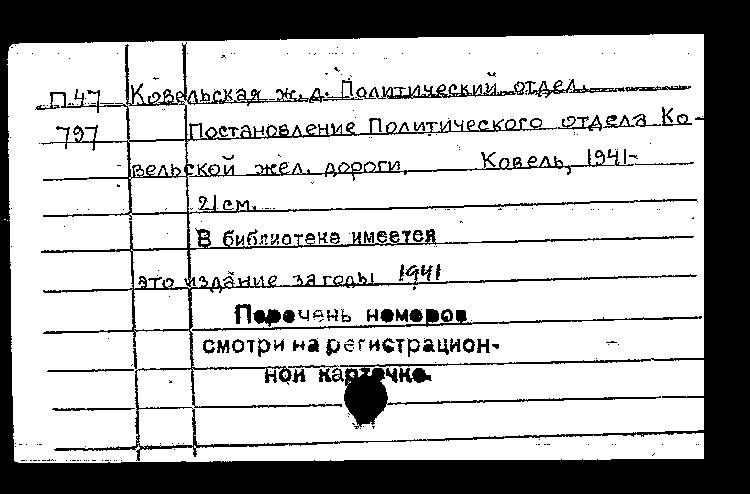 П.47 Ковельская ж.д. Политический отдел.
797 Постановление Политического отдела Ко-
вельской жел. дороги. Ковель, 1941-
21 см.
В библиотеке имеется
это издание за годы 1941
Перечень номеров
смотри на регистрацион-
ной карточке.